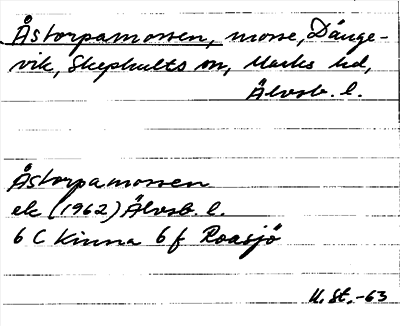 Åstorpamossen, mosse, Dänge-
vik, Skephults sn, Marks hd,
Älvsb. l.
Åstorpamossen
ek (1962) Älvsb. l.
6 C Kinna 6 f Roasjö
U. St. -63